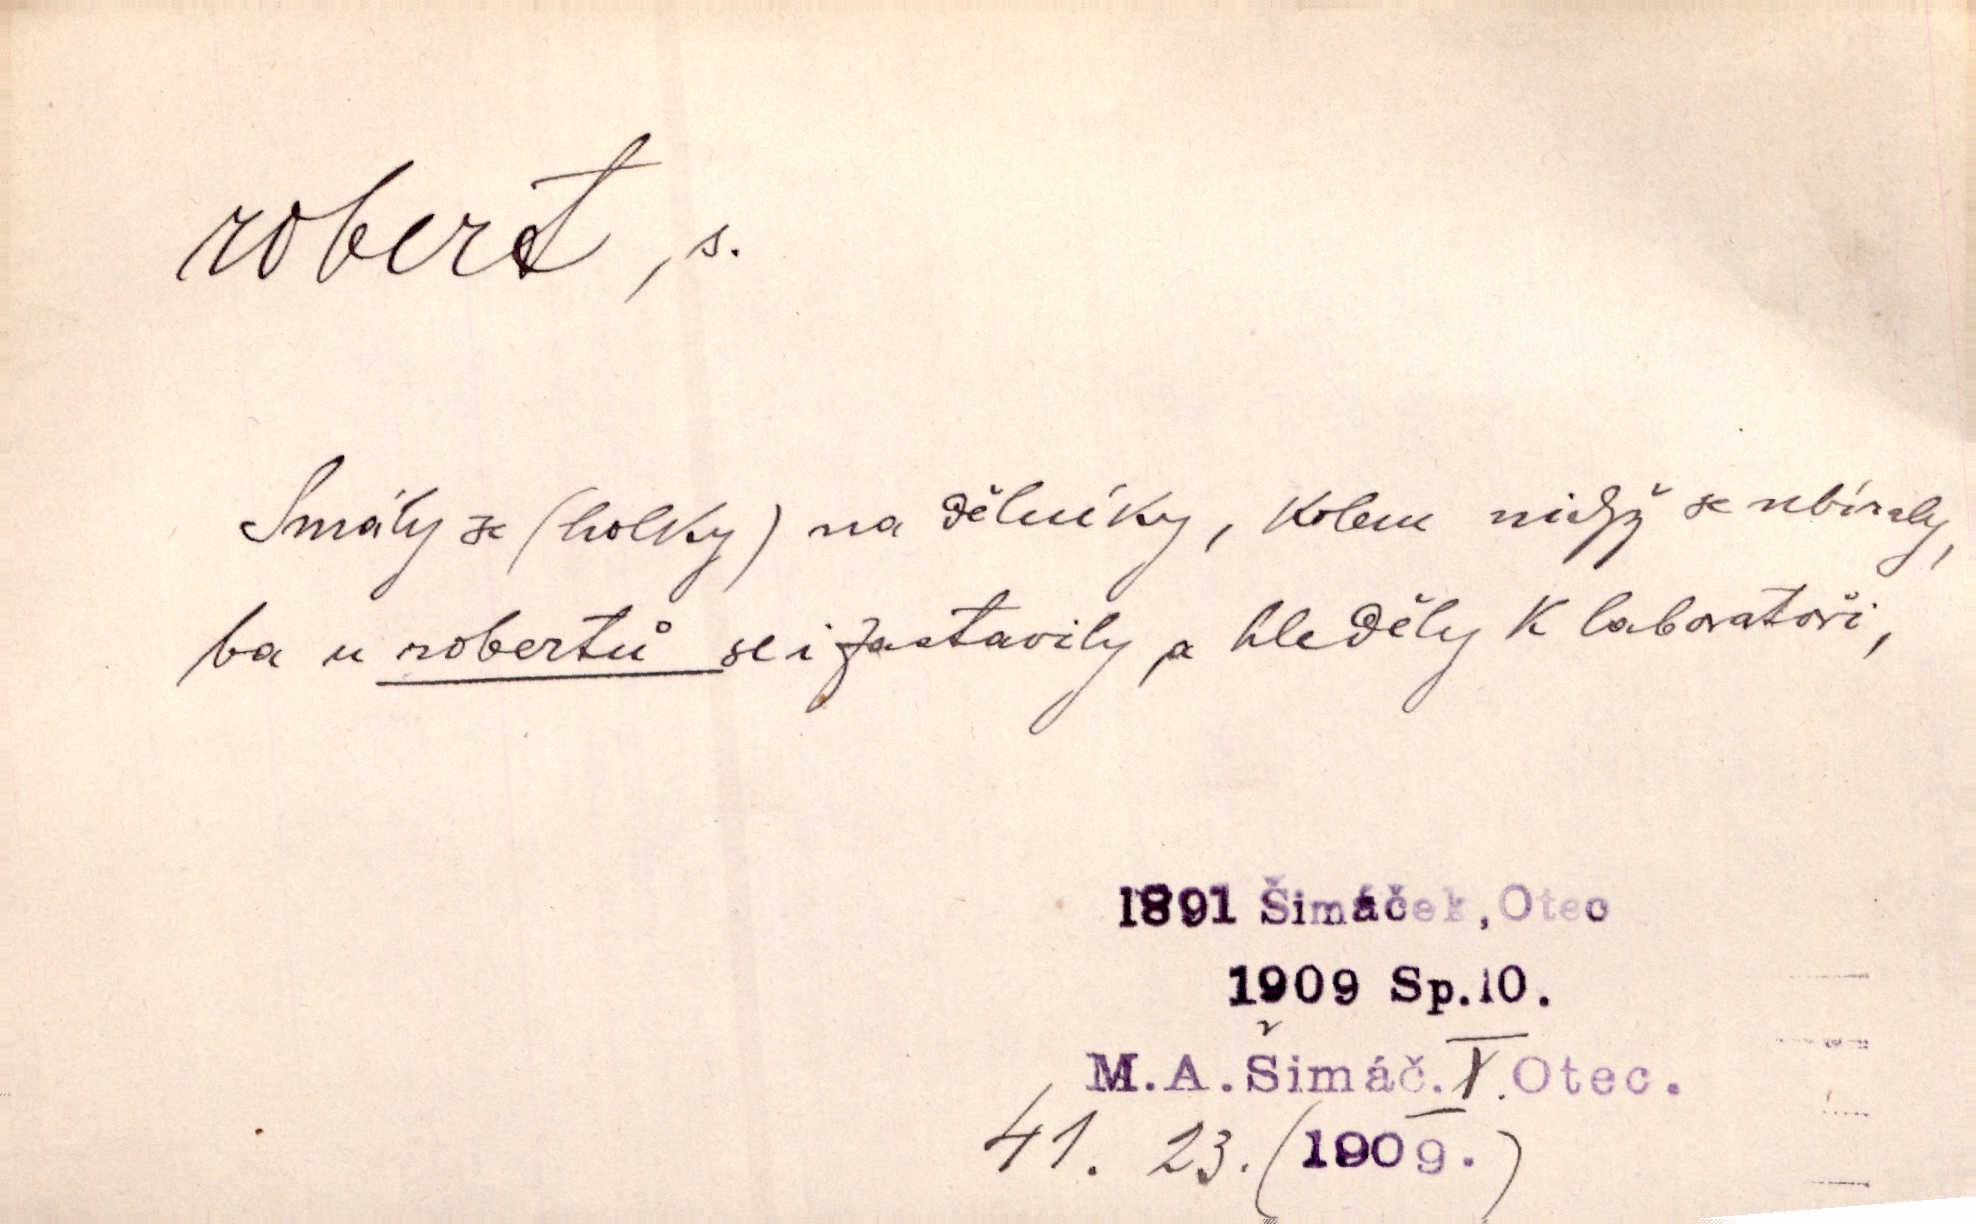 robert, s.
Smály se (holky) na dělníky, kolem nichž se ubíraly,
ba u robertů se i zastavily a hleděly k laboratoři,
1891 Šimáček, Otec
1909 Sp.10.
M.A.Šimáč. X. Otec.
41. 23. (1909.)